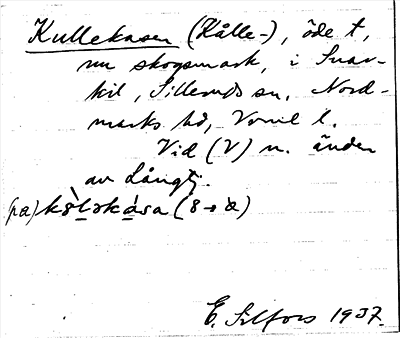 Kullekasen (Kålle-), öde t,
nu skogsmark, i Snar-
kil, Silleruds sn, Nord-
marks hd, Värml l.
Vid (V) n. änden
av Långtj.
(pa) kòlәkása (
E. Silfors 1937.